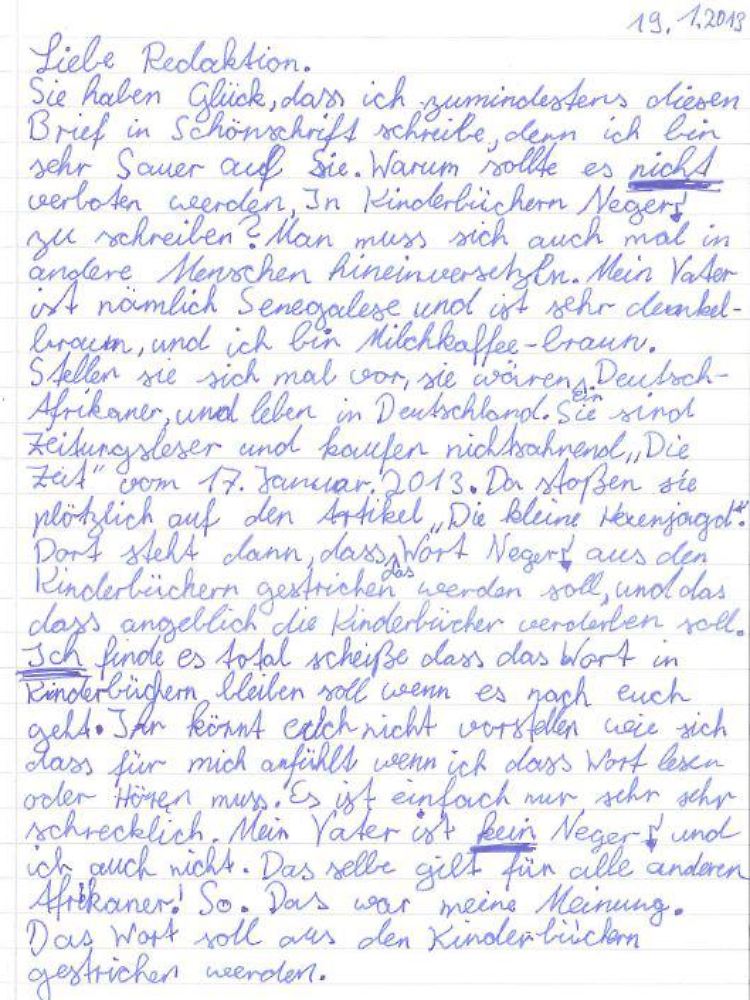 19. 1. 2013
Liebe Redaktion.
Sie haben Glück, dass ich zumindestens diesen
Brief in Schönschrift schreibe, denn ich bin
sehr Sauer auf Sie. Warum sollte es nicht
verboten werden, In Kinderbüchern Neger
zu schreiben? Man muss sich auch mal in
andere Menschen hineinversetzen. Mein Vater
ist nämlich Senegalese und ist sehr dunkel-
braun, und ich bin Milchkaffee-braun.
Stellen sie sich mal vor, sie wären ein Deutsch-
Afrikaner, und leben in Deutschland. Sie sind
Zeitungsleser und kaufen nichtsahnend „Die
Zeit" vom 17. Januar. 2013. Da stoßen sie
plötzlich auf den Artikel „Die kleine Hexenjagd".
Dort steht dann, dass das Wort Neger aus den
Kinderbüchern gestrichen werden soll, und das
dass angeblich die Kinderbücher verderben soll.
Ich finde es total scheiße dass das Wort in
Kinderbüchern bleiben soll wenn es nach euch
geht. Ihr könnt euch nicht vorstellen wie sich
dass für mich anfühlt wenn ich dass Wort lesen
oder Hören muss. Es ist einfach nur sehr sehr
schrecklich. Mein Vater ist kein Neger und
ich auch nicht. Das selbe gilt für alle anderen
Afrikaner! So. Das war meine Meinung.
Das Wort soll aus den Kinderbüchern
gestrichen werden.